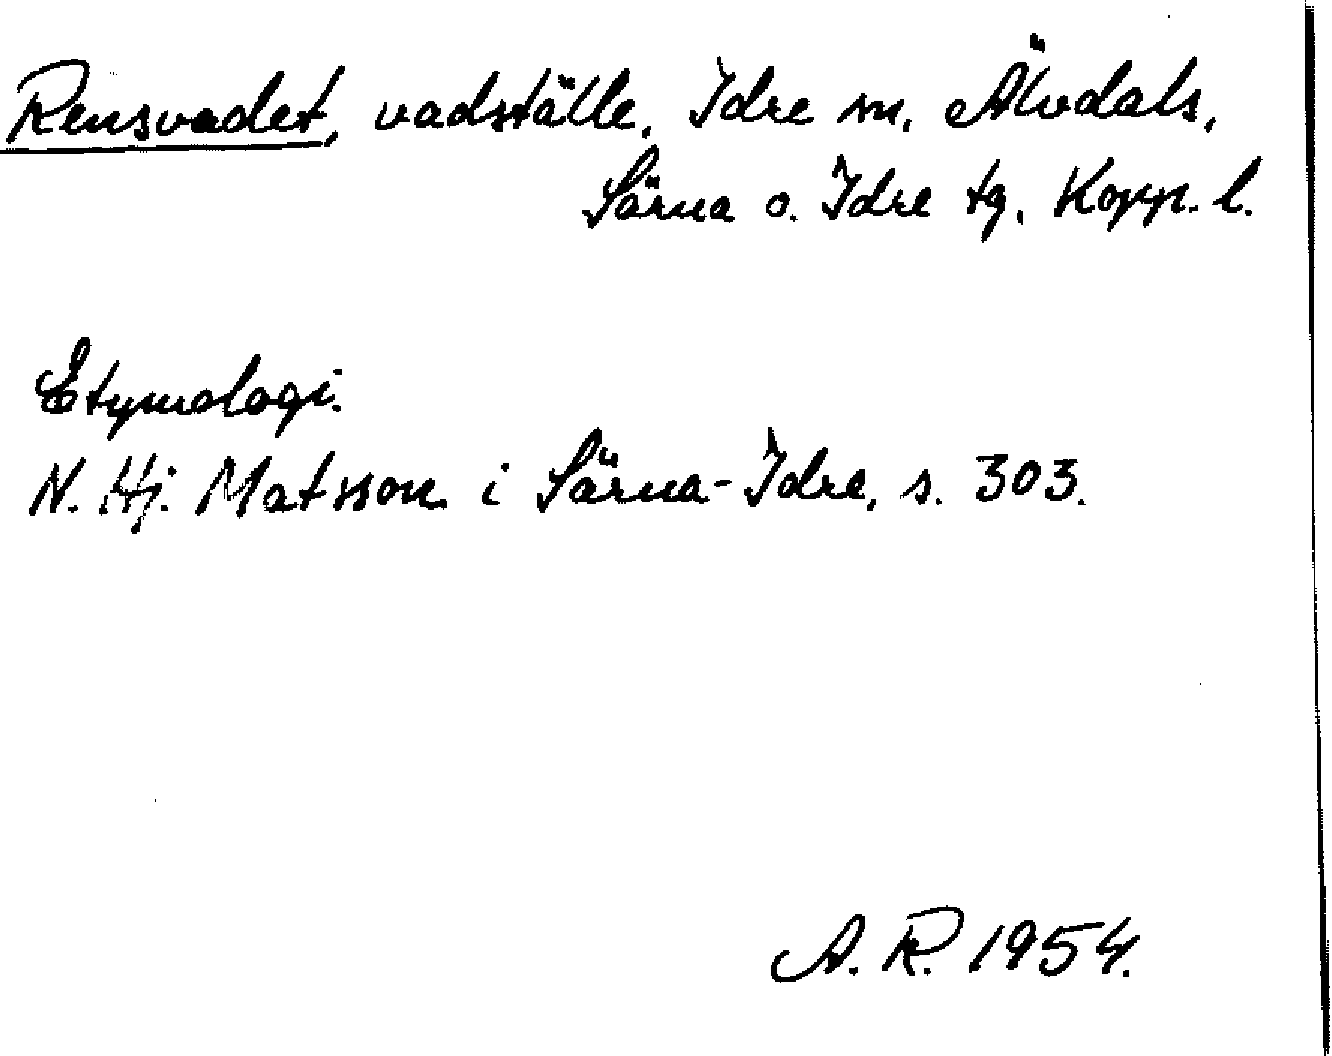 Rensvadet, vadställe, Idre sn, Älvdals,
Särna o. Idre tg, Kopp. l.
Etymologi.
N. Hj. Matsson i Särna-Idre, s. 303.
A. R. 1954.